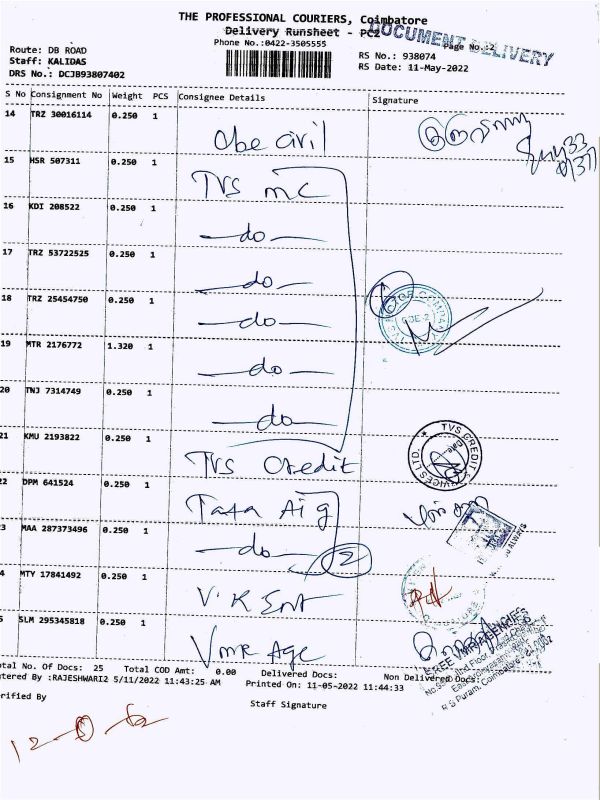 THE PROFESSIONAL COURIERS, Coimbatore
Delivery Runsheet - PC2
DOCUMENT DELIVERY
Phone No.:0422-3505555
Page No.:2
Route: DB ROAD
Staff: KALIDAS
DRS No.: DCJB93807402
RS No.: 938074
RS Date: 11-May-2022
S No Consignment No Weight PCS Consignee Details Signature
14 TRZ 30016114 0.250 1
Obe civil
15 HSR 507311 0.250 1 TVS mc
16 KDI 208522 0.250 1
do
17 TRZ 53722525 0.250 1
do
18 TRZ 25454750 0.250 1
do
6
19 MTR 2176772 1.320 1
do
20 TNJ 7314749 0.250 1
do
21 KMU 2193822 0.250 1
TVS Credit
TVS CREDIT SERVICES LTD.
22 DPM 641524 0.250 1
Tata Aig
3 MAA 287373496 0.250 1
do
2
4 MTY 17841492 0.250 1
V.K Ent
5 SLM 295345818 0.250 1
VMR Age
otal No. Of Docs: 25 Total COD Amt: 0.00 Delivered Docs: Non Delivered Docs:
ntered By :RAJESHWARI2 5/11/2022 11:43:25 AM Printed On: 11-05-2022 11:44:33
erified By Staff Signature
R S Puram, Coimbatore